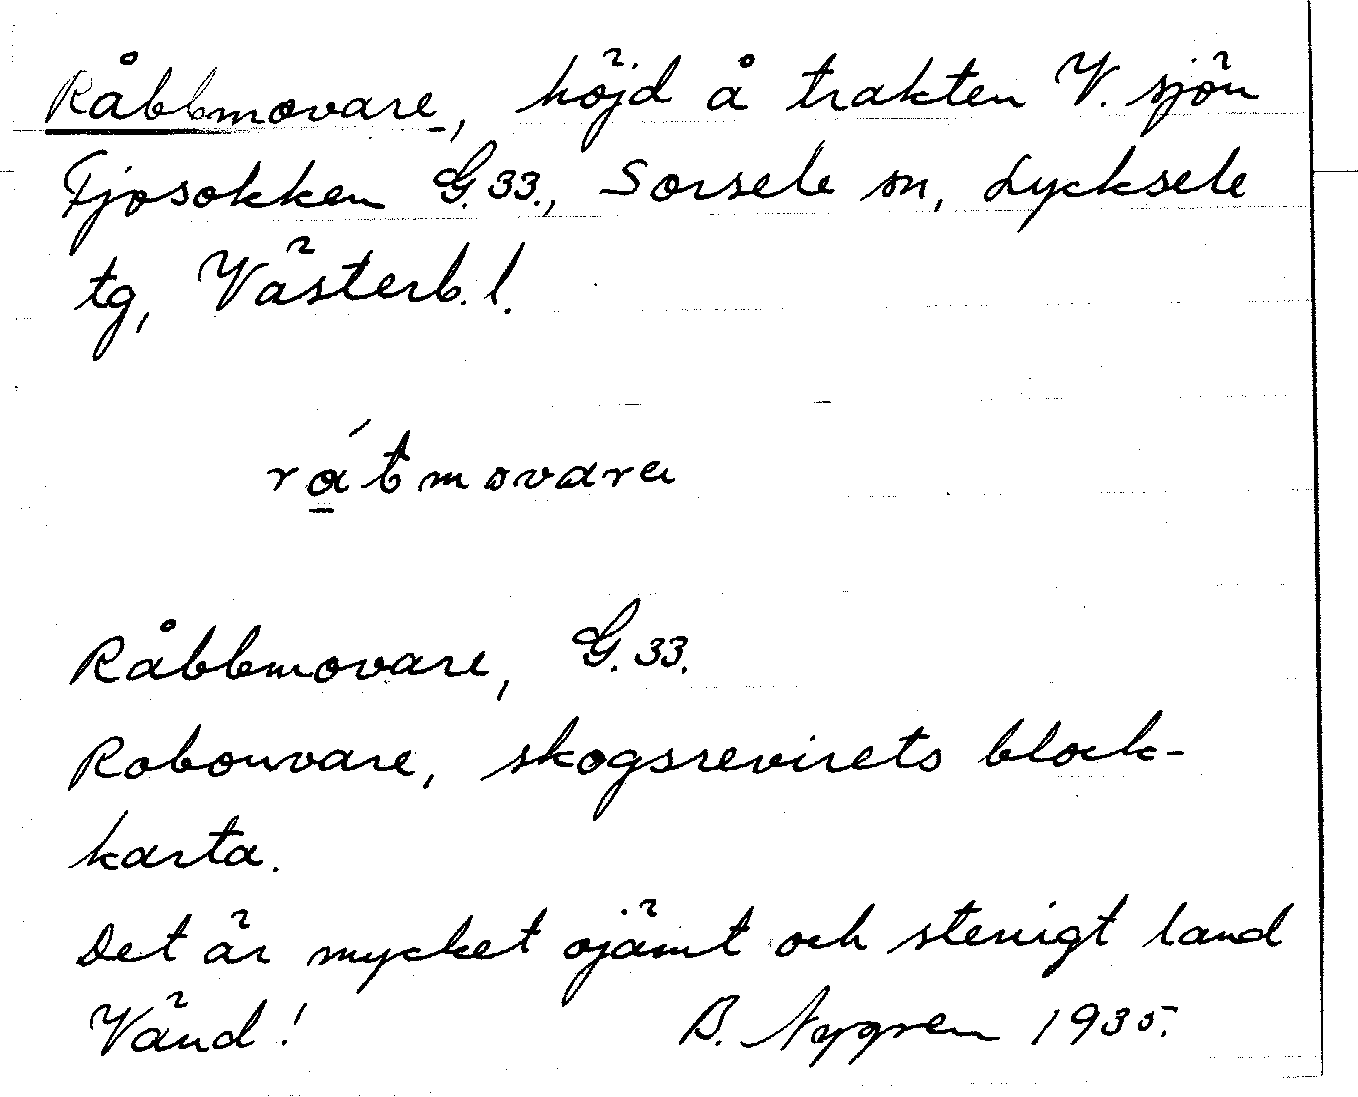 Råbbmovare, höjd å trakten V. sjön
Tjosokken G.33., Sorsele sn, Lycksele
tg, Västerb. l.
råt́movarɛ
Råbbmovare, G. 33.
Robouvare, skogsrevirets block-
karta.
Det är mycket ojämt och stenigt land
Vänd!
B. Nygren 1935.